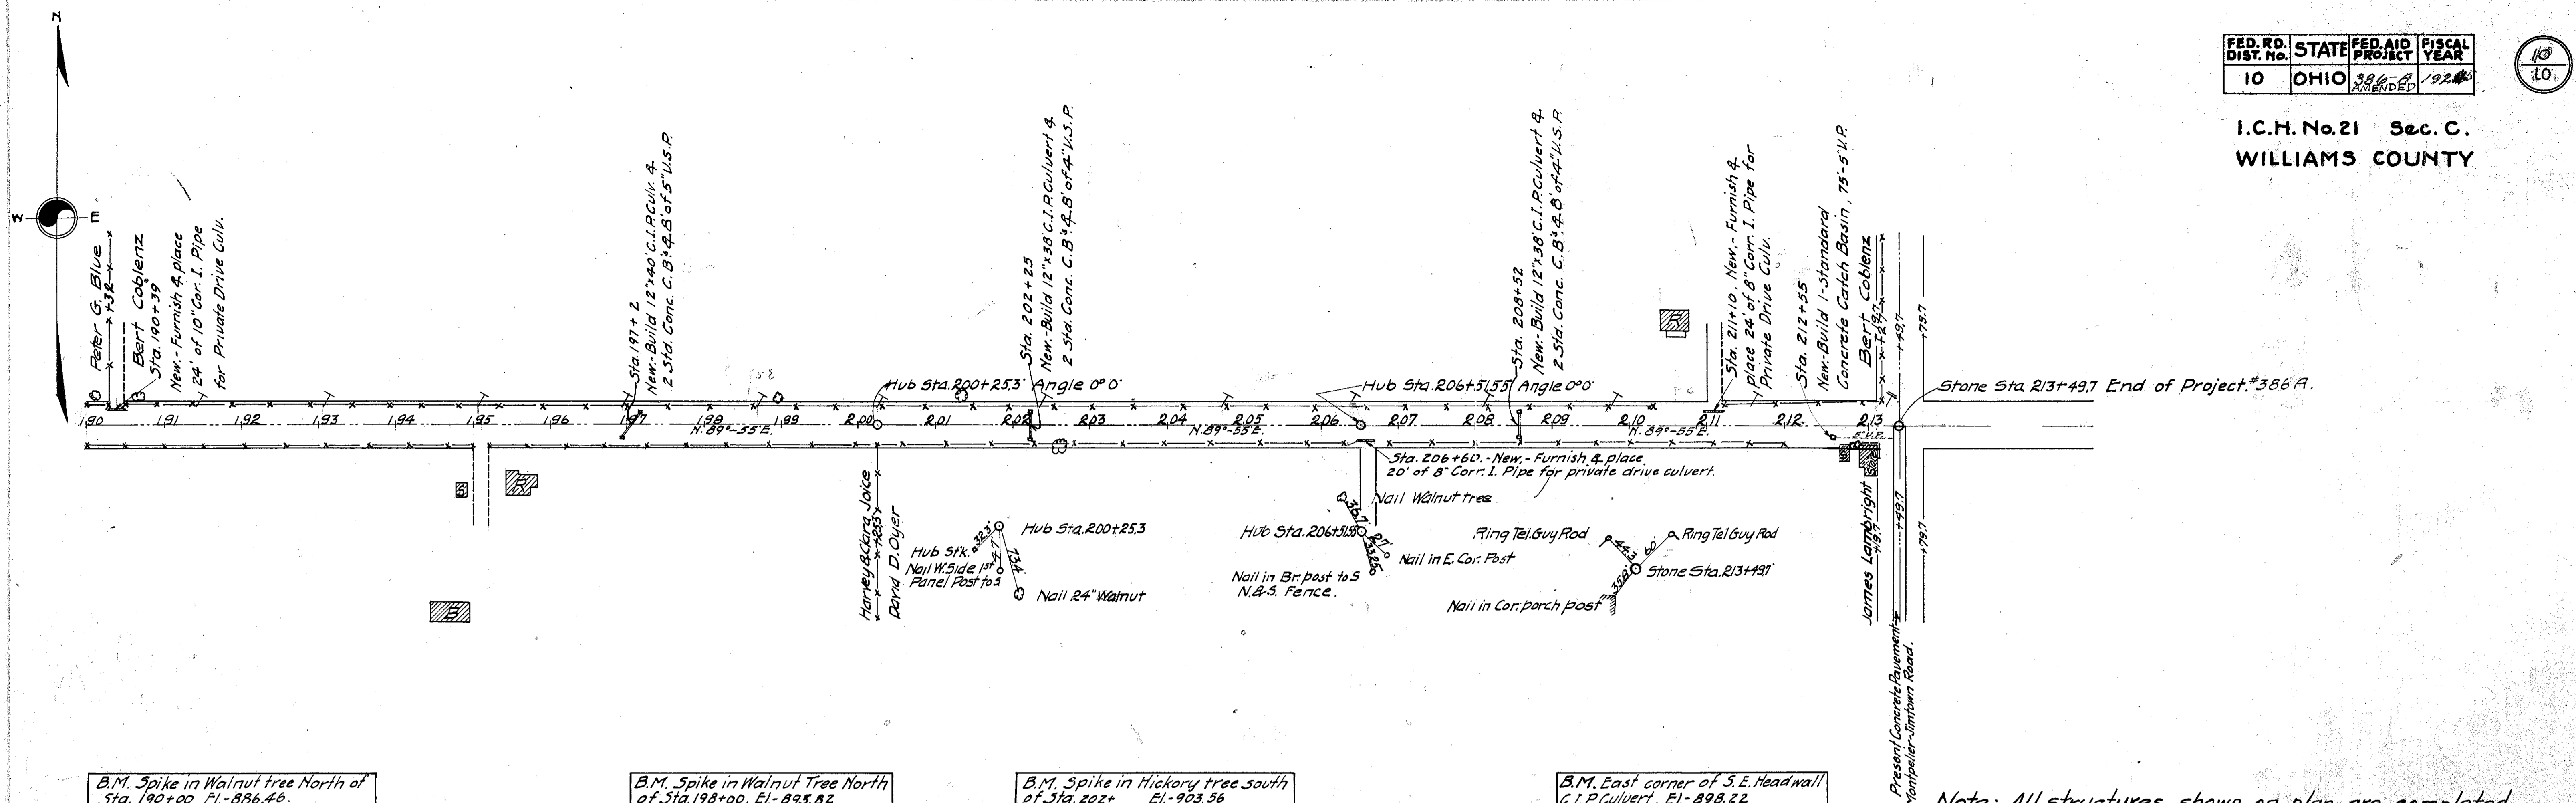 N
W
E
FED. RD. DIST. No.
STATE
FED. AID PROJECT
FISCAL YEAR
10
OHIO
386-A AMENDED
10
10
I.C.H. No. 21 Sec. C.
WILLIAMS COUNTY
Peter G. Blue
+32
Bert Coblenz
Sta. 190+39
New.- Furnish & place
24' of 10" Cor. I. Pipe
for Private Drive Culv.
Sta. 197+2
New.-Build 12"x40' C.I.P. Culv. &
2 Std. Conc. C.B's & 8' of 5" V.S.P.
Sta. 202+25
New.-Build 12"x38' C.I.P. Culvert &
2 Std. Conc. C.B's & 8' of 4" V.S.P.
Sta. 208+52
New.-Build 12"x38' C.I.P. Culvert &
2 Std. Conc. C.B's & 8' of 4" V.S.P.
R
Sta. 211+10, New.- Furnish &
place 24' of 8" Corr. I. Pipe for
Private Drive Culv.
Sta. 212+55
New.-Build 1-Standard
Concrete Catch Basin, 75'-5" V.P.
Bert Coblenz
+49.7
+79.7
Hub Sta. 200+25.3 Angle 0°0'
Hub Sta. 206+51.55 Angle 0°0'
Stone Sta 213+49.7 End of Project #386 A.
190 191 192 193 194 195 196 197 198 199 200 201 202 203 204 205 206 207 208 209 210 211 212 213
N. 89°-55' E.
N. 89°-55' E.
N. 89°-55' E.
5" V.P.
Sta. 206+60.-New,- Furnish & place
20' of 8" Corr. I. Pipe for private drive culvert.
S
R
B
Harvey & Clara Joice
+25.3
David D. Oyer
Hub Sta. 200+25.3
32.3'
47'
73.4'
Hub Stk.
Nail W. Side 1st
Panel Post to S
Nail 24" Walnut
Nail Walnut tree
36.7'
Hub Sta. 206+51.55
27'
33.25'
Nail in E. Cor. Post
Nail in Br. post to S
N.&S. Fence.
Ring Tel. Guy Rod
Ring Tel Guy Rod
44.3'
60'
35.8'
Stone Sta. 213+49.7
Nail in Cor. porch post
James Lambright
+19.7
+49.7
+79.7
Present Concrete Pavement
Montpelier-Jimtown Road.
B.M. Spike in Walnut tree North of
Sta. 190+00 El.-886.46.
B.M. Spike in Walnut Tree North
of Sta. 198+00. El.-895.82
B.M. Spike in Hickory tree south
of Sta. 202+ El.-903.56
B.M. East corner of S.E. Headwall
C.I.P. Culvert. El-898.22
Note: All structures shown on plan are completed